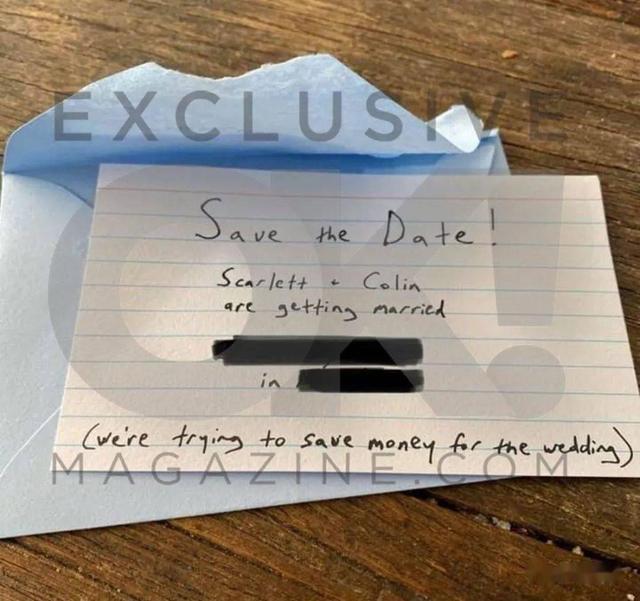 EXCLUSIVE
OK!
Save the Date!
Scarlett + Colin
are getting married
in
(we're trying to save money for the wedding)
MAGAZINE.COM